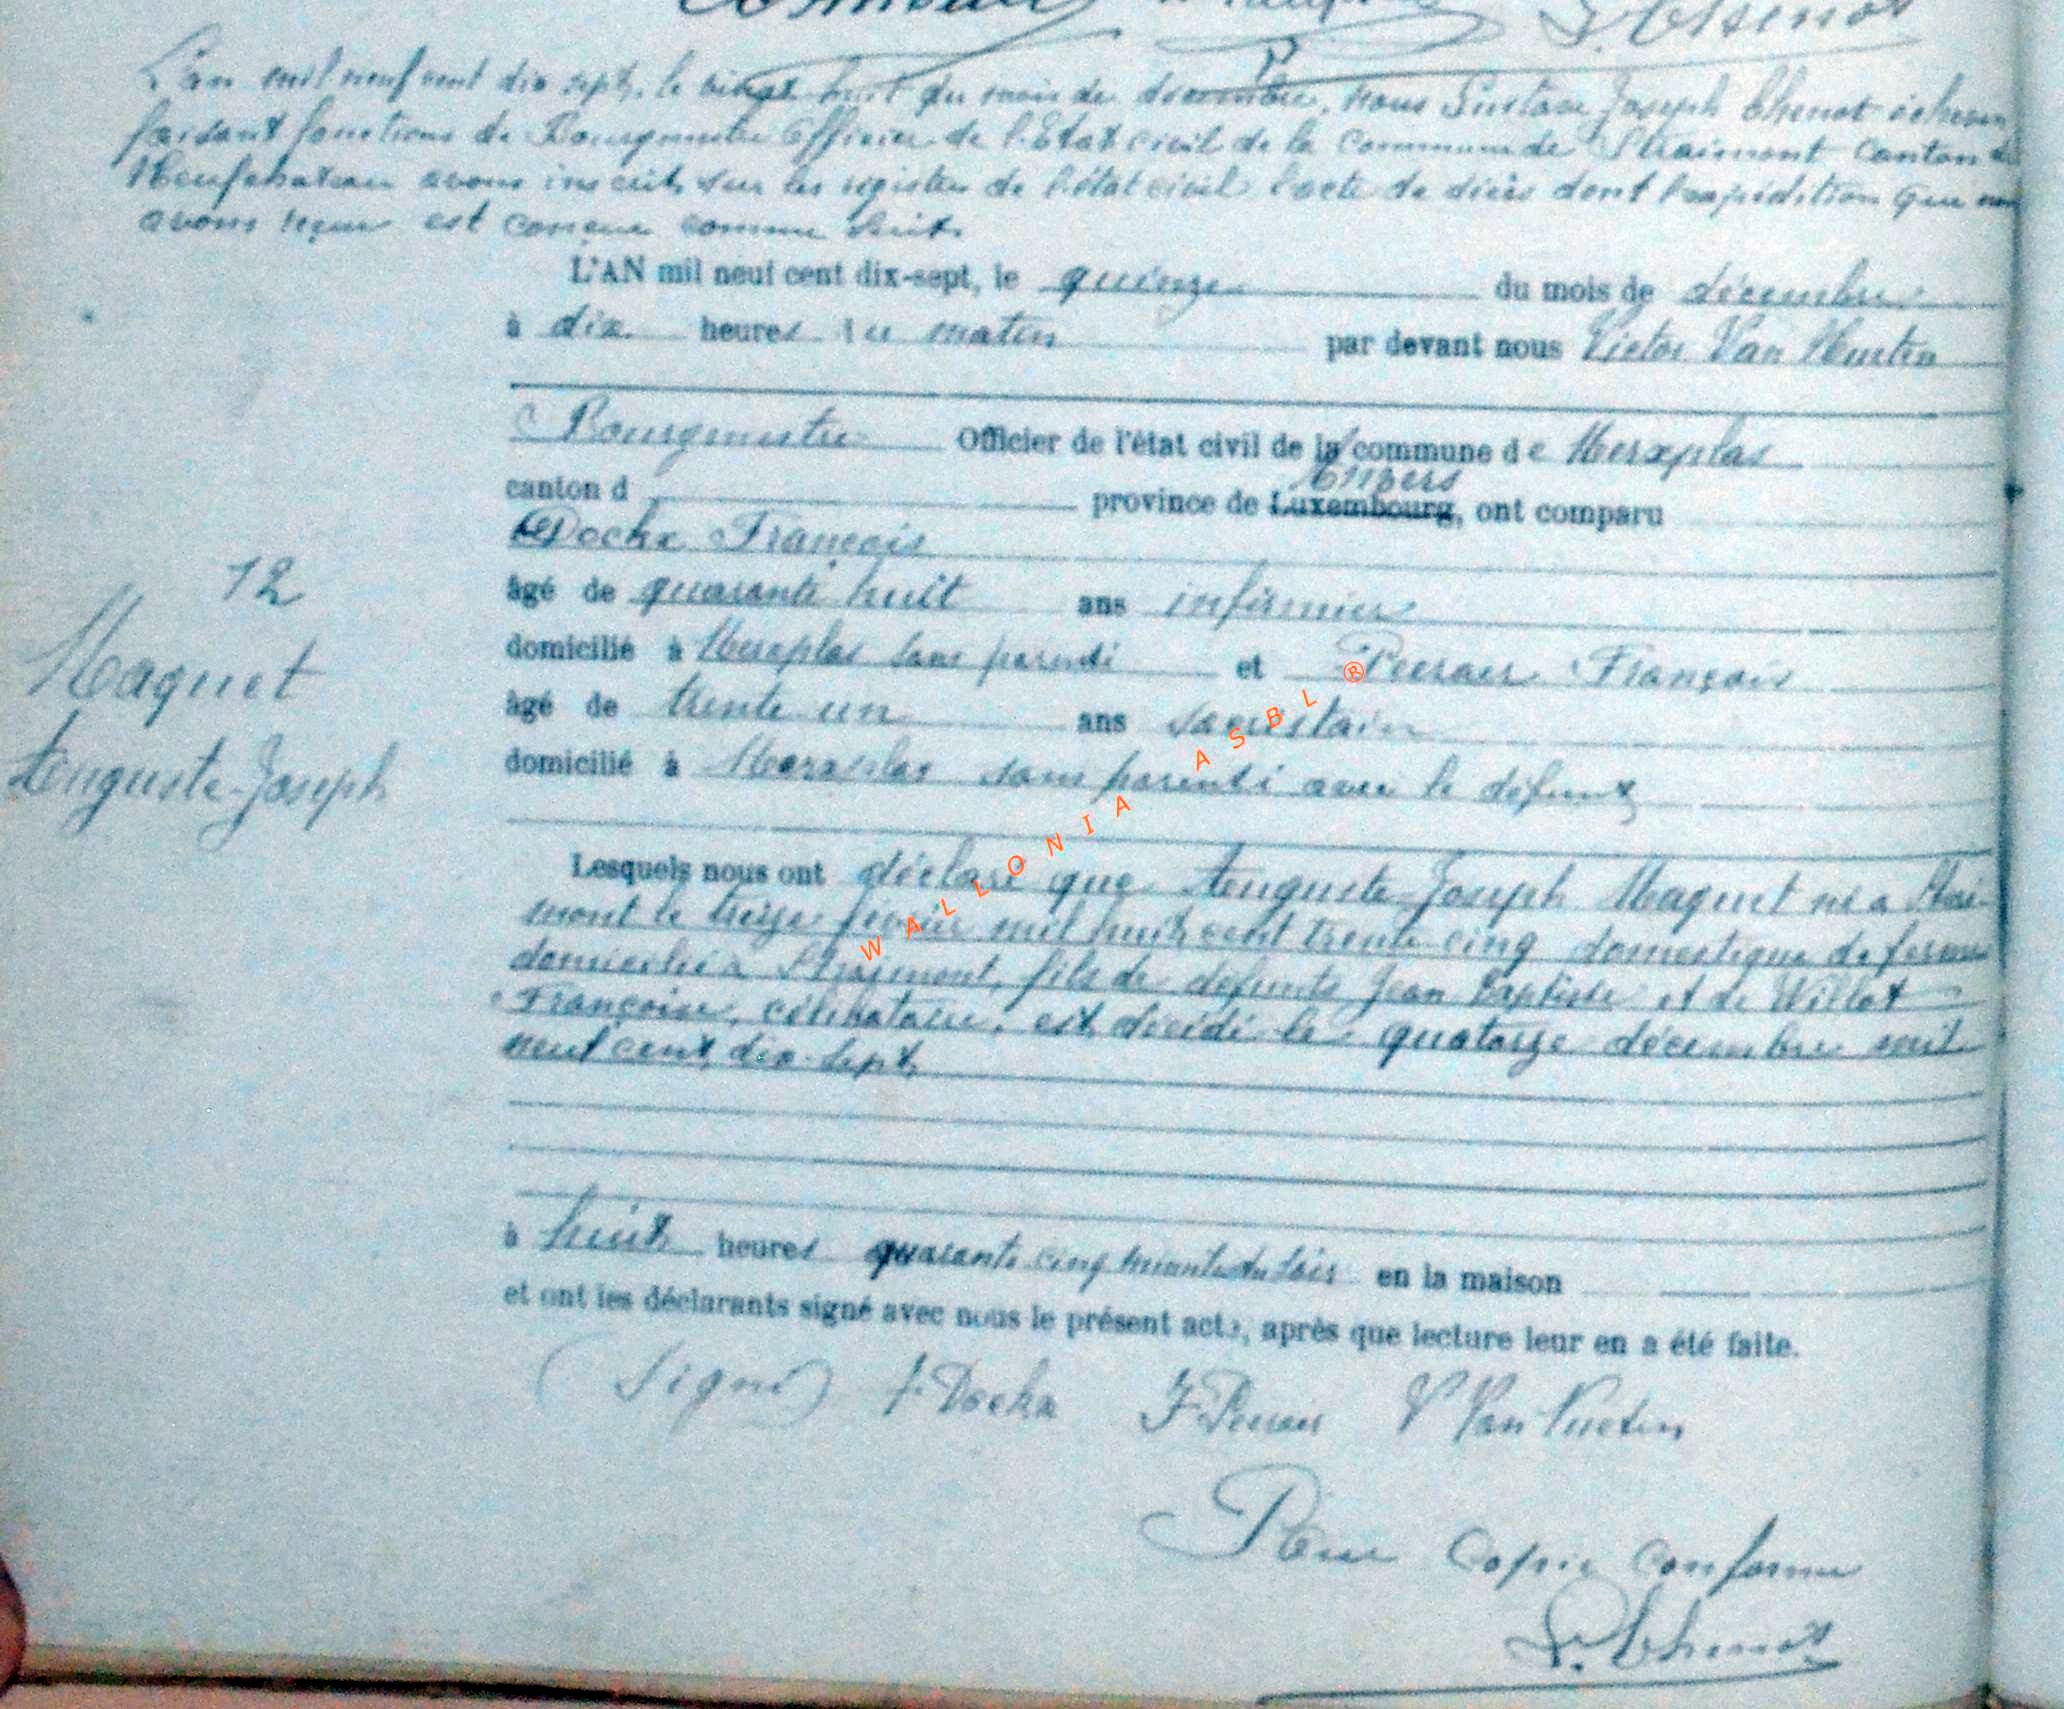 L'an mil neuf cent dix sept, le vingt huit du mois de décembre, nous Gustave Joseph Thenot échevin
faisant fonctions de Bourgmestre Officier de l'Etat civil de la Commune de Straimont Canton de
Neufchateau avons inscrit sur les registres de l'état civil l'acte de décès dont l'expédition que nous
avons reçue est conçue comme suit.
L'AN mil neuf cent dix-sept, le quinze du mois de décembre
à dix heures du matin par devant nous Victor Van
Bourgmestre Officier de l'état civil de la commune de Merxplas
Anvers
canton d province de Luxembourg, ont comparu
Dockx François
âgé de quarante huit ans infirmier
12
domicilié à Merxplas sans parenté et Peeraer François
Maquet
âgé de trente un ans sacristain
Auguste-Joseph
domicilié à Merxplas sans parenté avec le défunt
Lesquels nous ont déclaré que Auguste Joseph Maquet né à Strai-
mont le treize février mil huit cent trente cinq domestique de ferme
domicilié à Straimont, fils de défunts Jean Baptiste et de Willot
Françoise, célibataire, est décédé le quatorze décembre mil
neuf cent dix-sept
à huit heures quarante cinq minutes du soir en la maison
et ont les déclarants signé avec nous le présent acte, après que lecture leur en a été faite.
(Signé) F. Dockx F. Peeraer V Van
Pour Copie Conforme
G. Thenot
WALLONIA ASBL ®